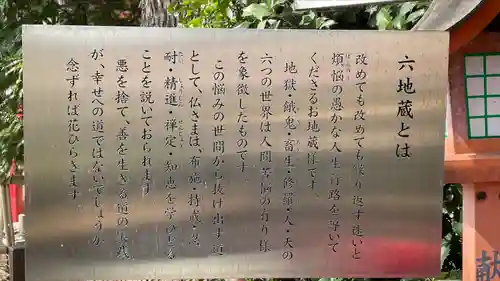 六地蔵とは
改めても改めても繰り返す迷いと
煩悩の愚かな人生行路を導いて
くださるお地蔵様です。
地獄・餓鬼・畜生・修羅・人・天の
六つの世界は人間苦悩の有り様
を象徴したものです。
この悩みの世間から抜け出す道
として、仏さまは、布施・持戒・忍
耐・精進・禅定・知恵を学び
ことを説いておられます
悪を捨て、善を生きる
が、幸せへの道ではないでしょうか
念ずれば花ひらきます
献